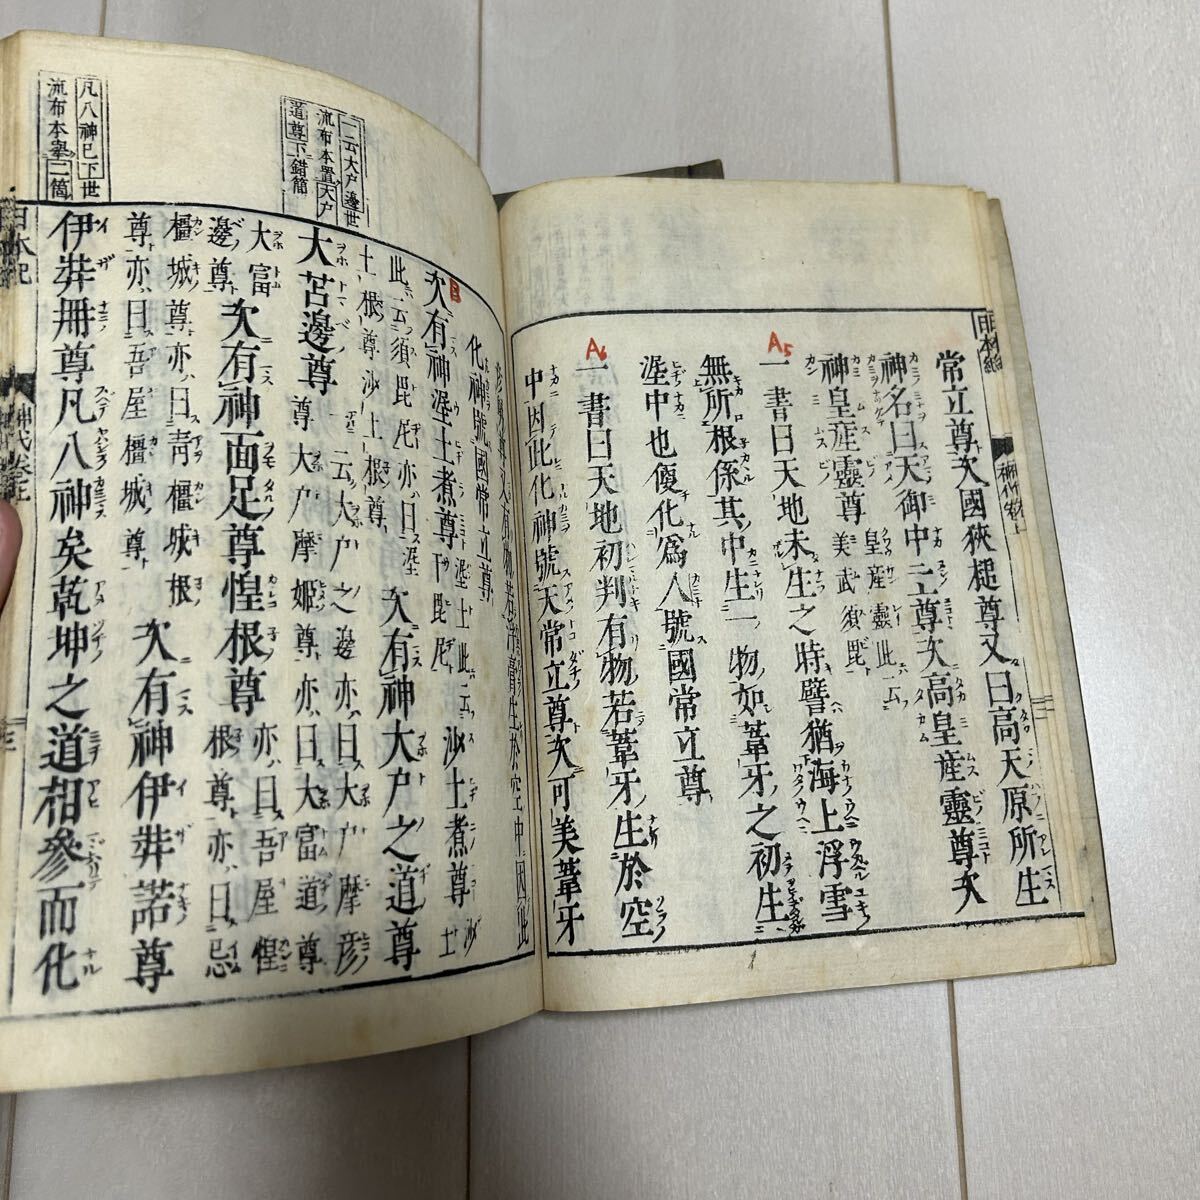 常立尊次國狹槌尊又曰高天原所生
神名曰天御中主尊次高皇産靈尊次
神皇産靈尊
皇産靈此云
美武須毗
A5
一書曰天地未生之時譬猶海上浮雪
無所根係其中生一物如葦牙之初生
渥中也便化爲人號國常立尊
A6
一書曰天地初判有物若葦牙生於空
中因此化神號天常立尊次可美葦牙
化神號國常立尊
次有神渥土煮尊
渥土此云
沙土煮尊
此云須毘尼亦曰渥
土根尊沙土根尊
次有神大戸之道尊
一云大戸之邊
大苫邊尊
亦曰大戸摩彦
尊大戸摩姫尊亦曰大富道尊
大富
邊尊
次有神面足尊惶根尊
亦曰吾屋惶
根尊亦曰忌
橿城尊亦曰青橿城根
尊亦曰吾屋橿城尊
次有神伊弉諾尊
伊弉冊尊凡八神矣乾坤之道相參而化
一云大戸邊世
流布本置大戸
道尊下錯簡
凡八神已下世
流布本擧二箇
日本紀
神代卷上